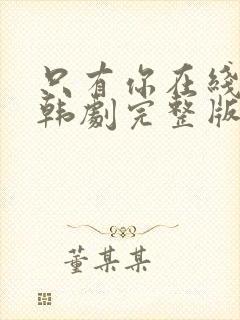 只有你在线
韩剧完整版
董某某